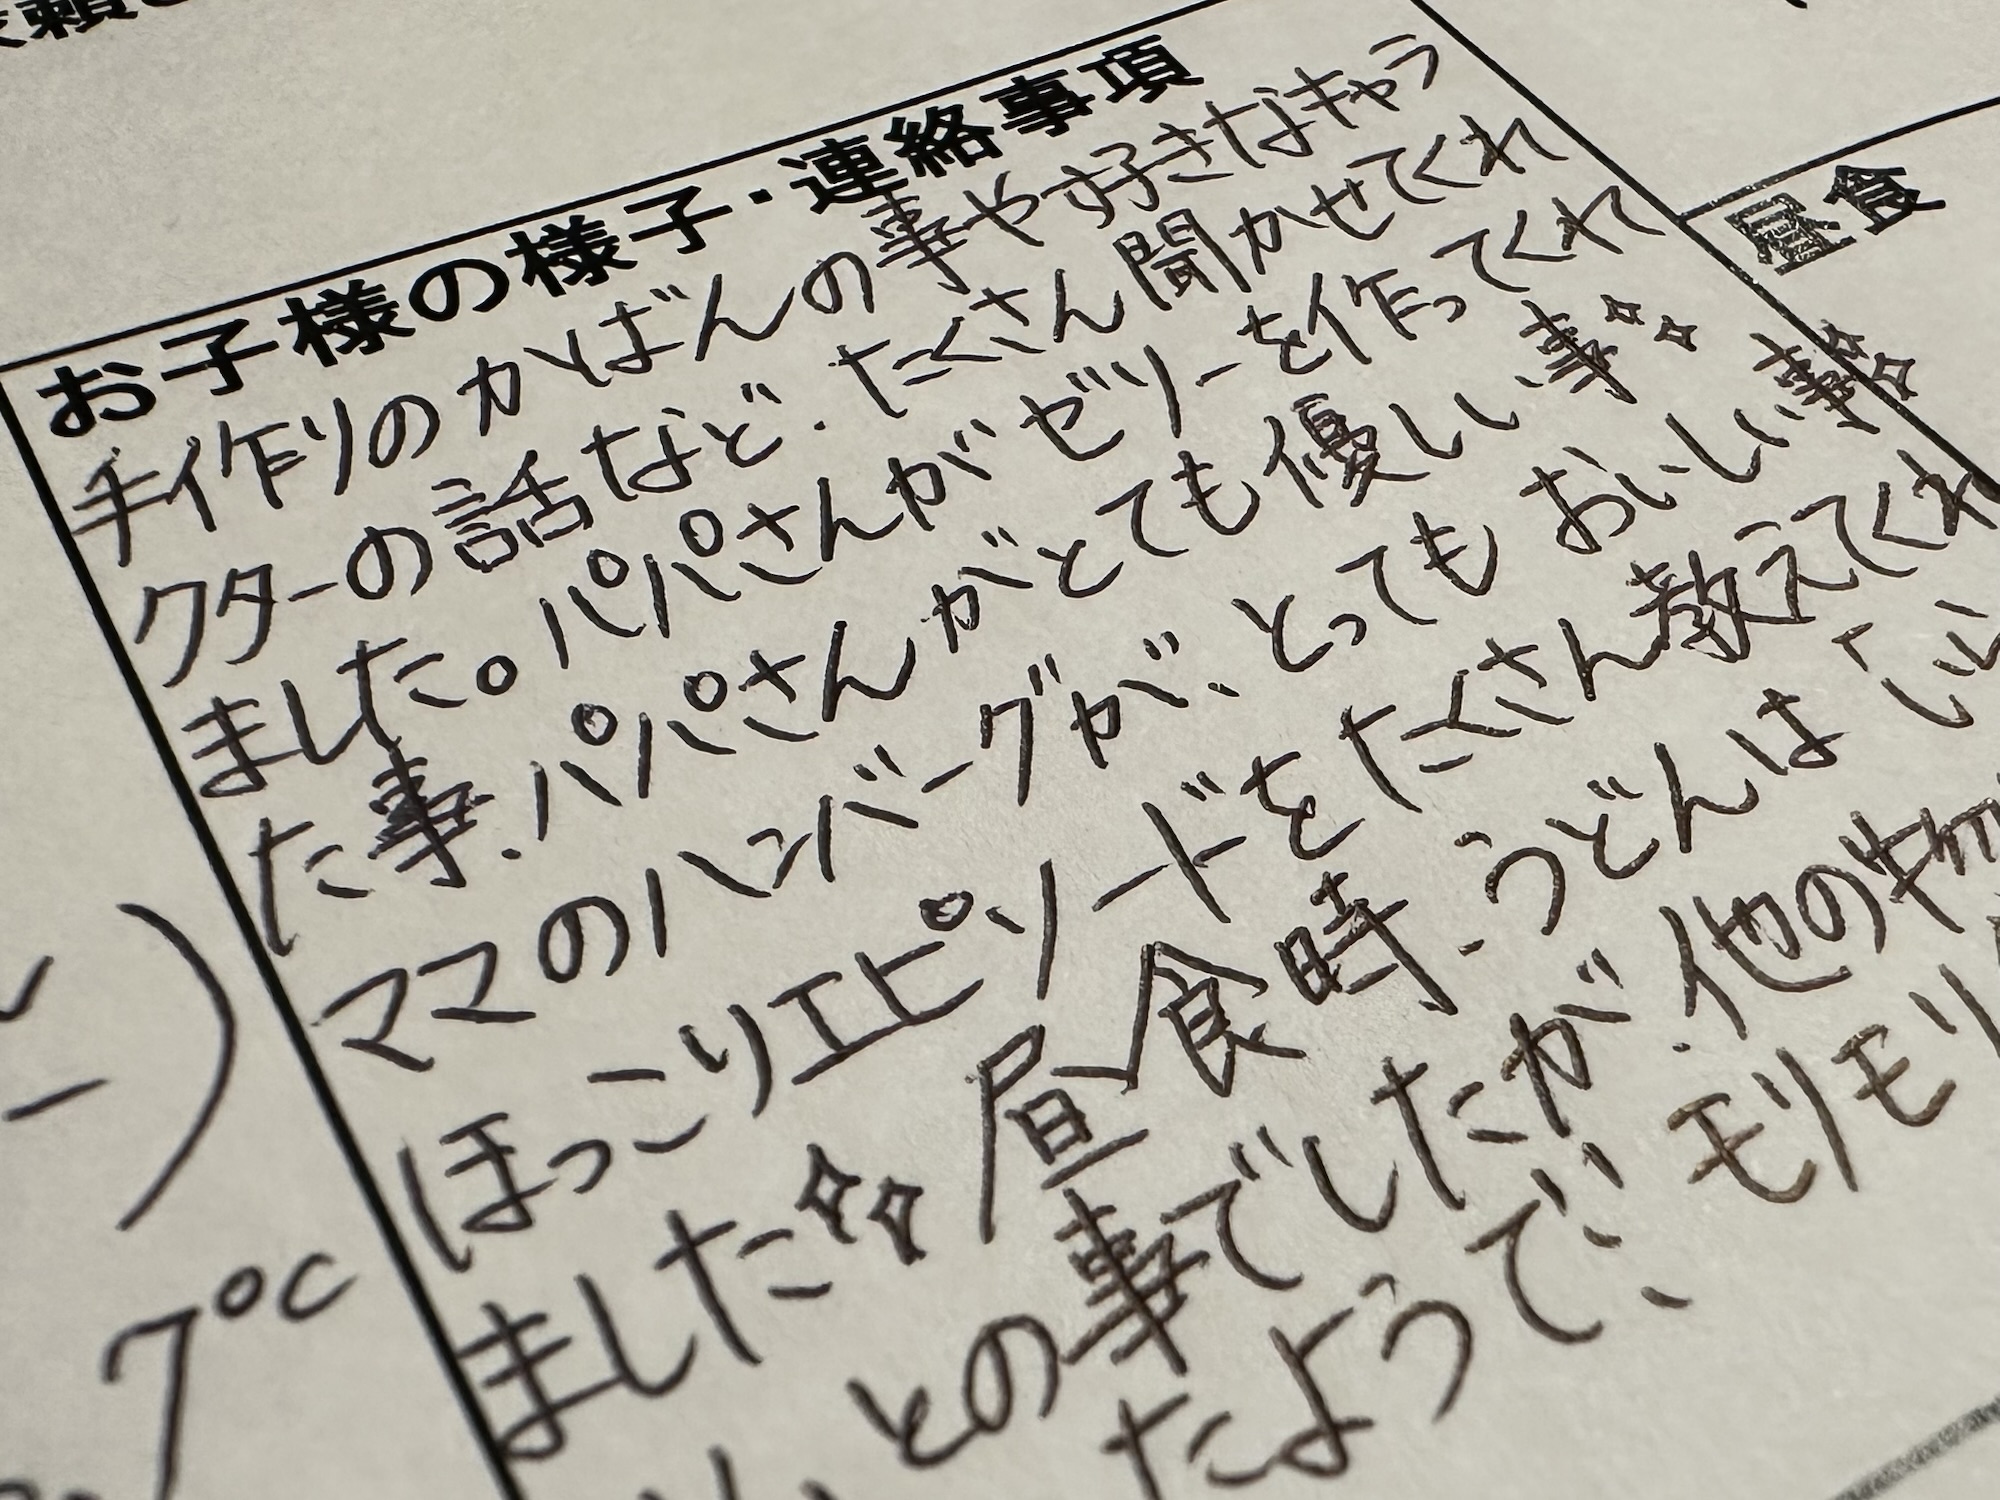 お子様の様子・連絡事項
手作りのかばんの事や好きなキャラ
クターの話など、たくさん聞かせてくれ
ました。パパさんがゼリーを作ってくれ
た事、パパさんがとても優しい事
ママのハンバーグが、とってもおいしい事
ほっこりエピソードをたくさん教えてくれ
ました 昼食時、うどんは
との事でしたが、他の物
たようで、モリモリ
昼食
7℃